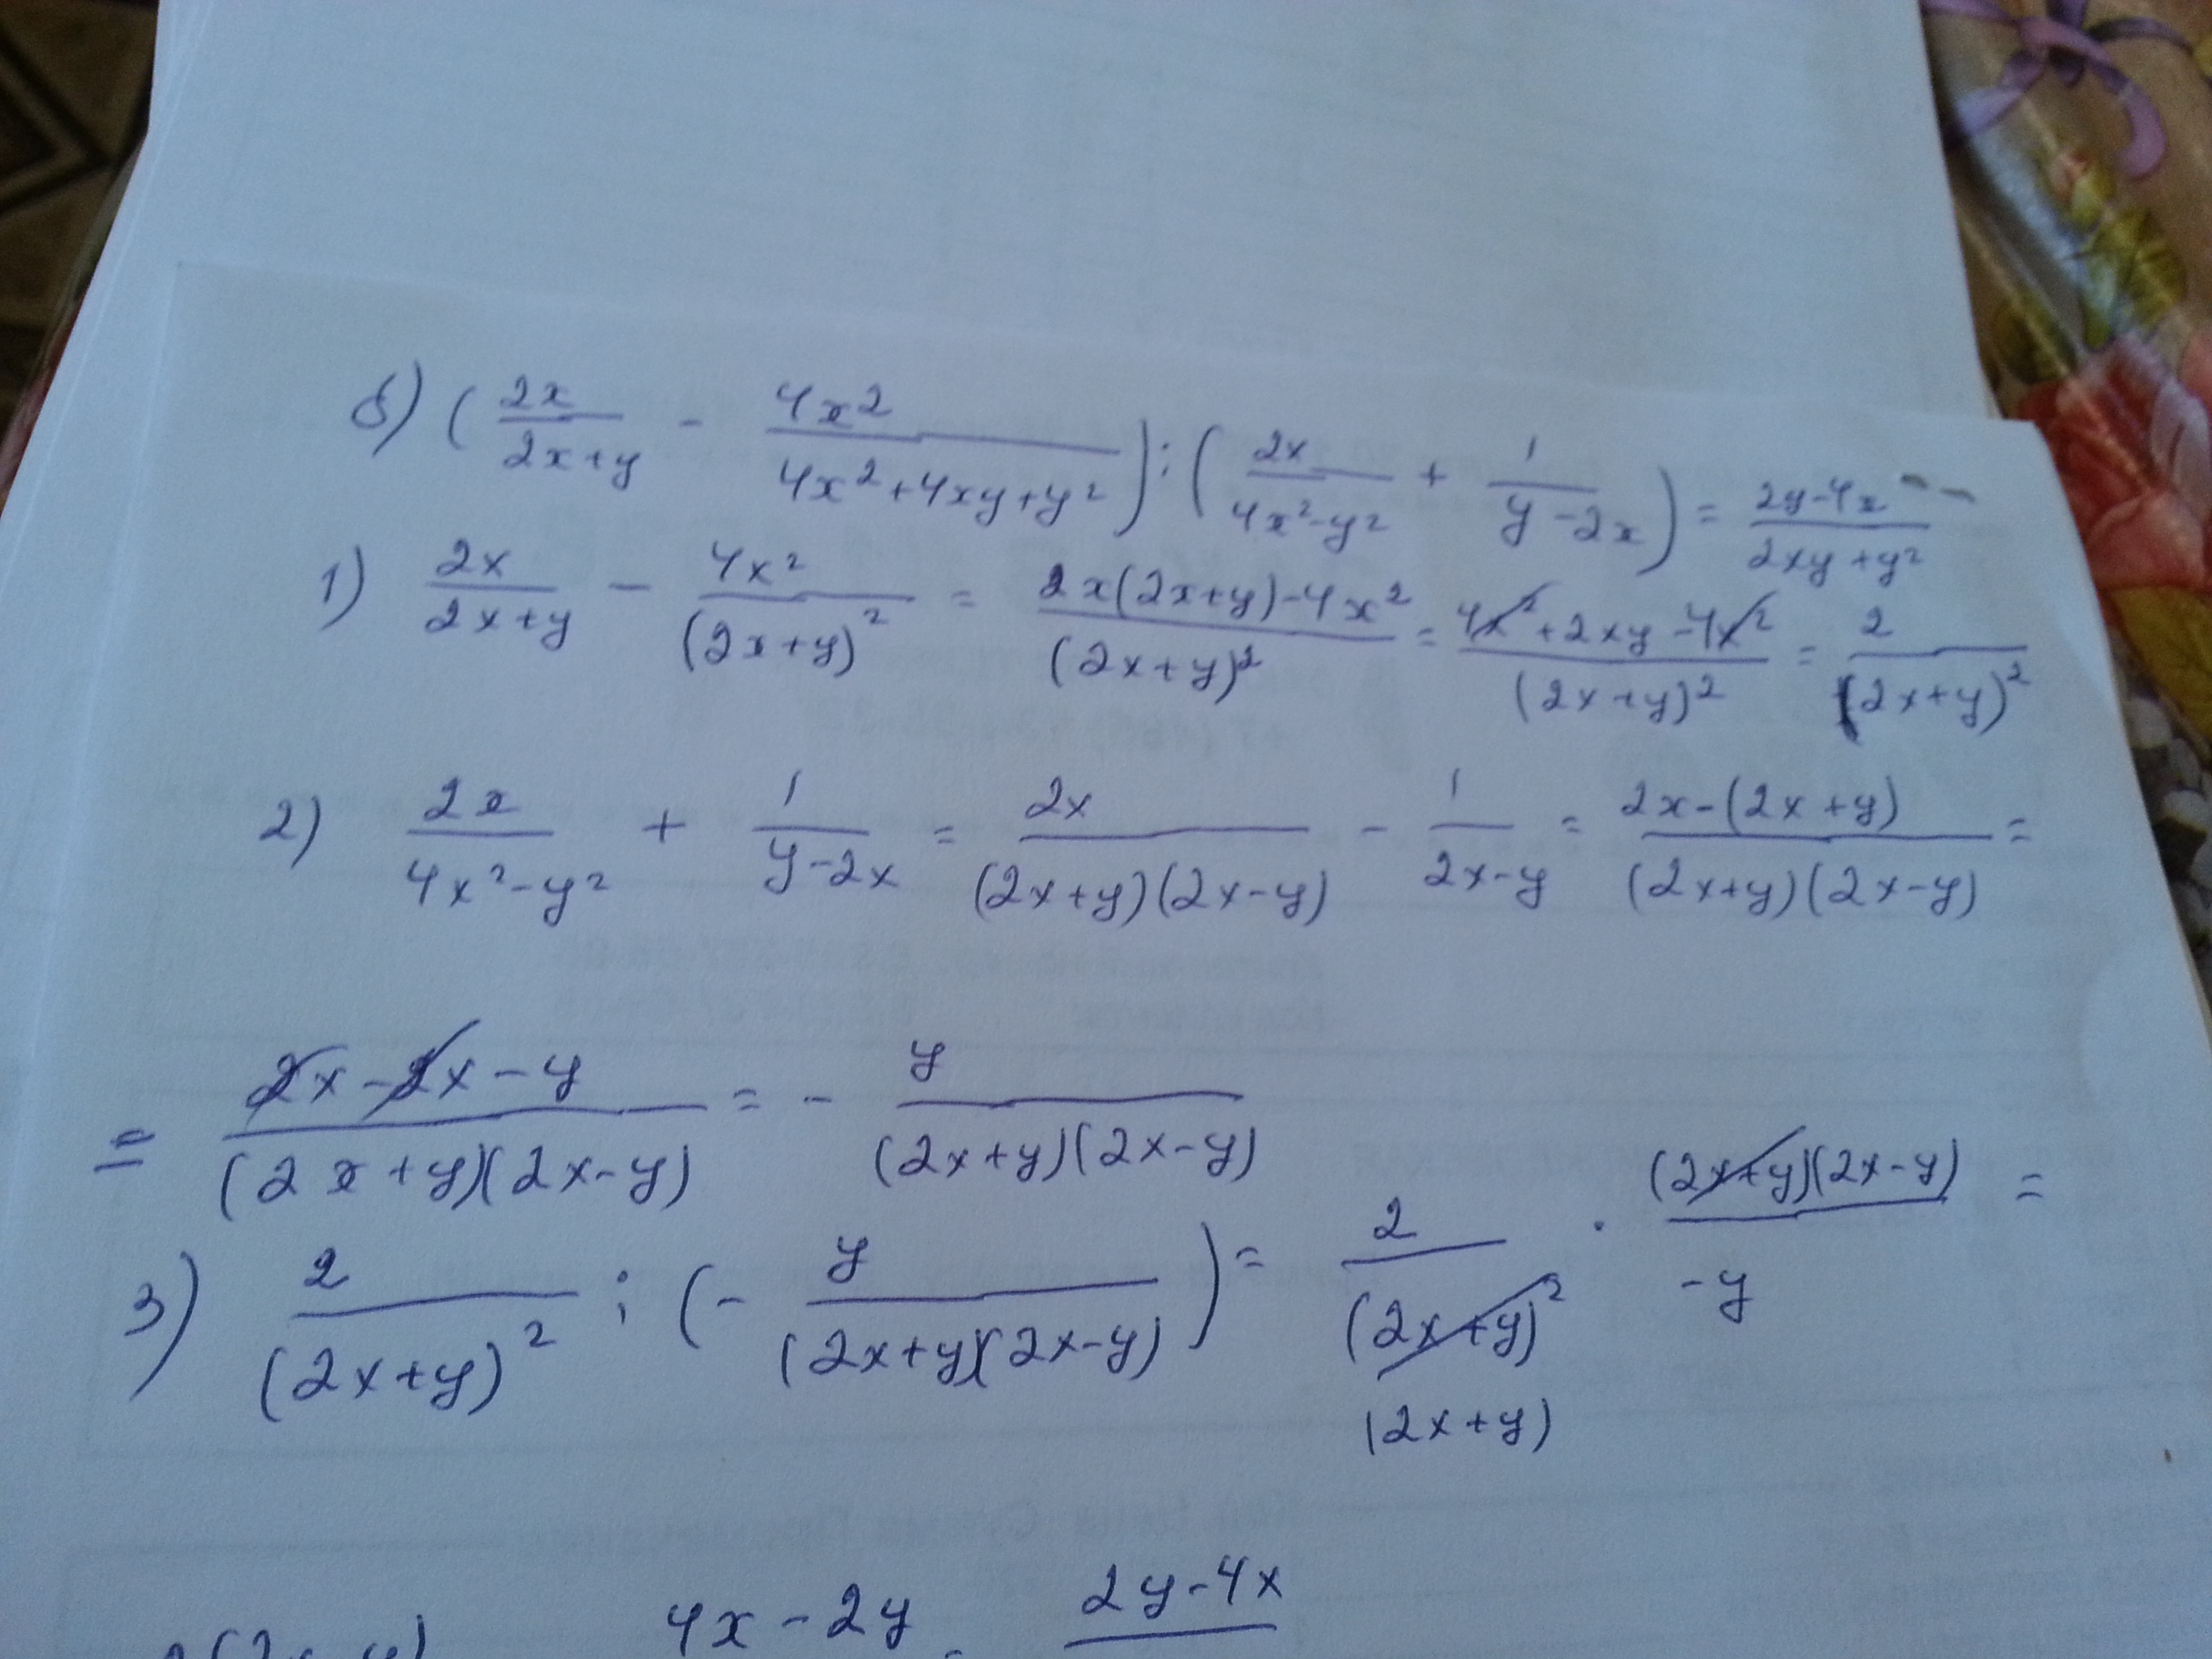 б) (2x/(2x+y) - 4x²/(4x²+4xy+y²)) : (2x/(4x²-y²) + 1/(y-2x)) = (2y-4x)/(2xy+y²)
1) 2x/(2x+y) - 4x²/(2x+y)² = (2x(2x+y)-4x²)/(2x+y)² = (4x²+2xy-4x²)/(2x+y)² = 2/(2x+y)²
2) 2x/(4x²-y²) + 1/(y-2x) = 2x/((2x+y)(2x-y)) - 1/(2x-y) = (2x-(2x+y))/((2x+y)(2x-y)) =
= (2x-2x-y)/((2x+y)(2x-y)) = - y/((2x+y)(2x-y))
3) 2/(2x+y)² : (- y/((2x+y)(2x-y))) = 2/(2x+y)² · (2x+y)(2x-y)/-y =
(2x+y)
4x-2y = 2y-4x